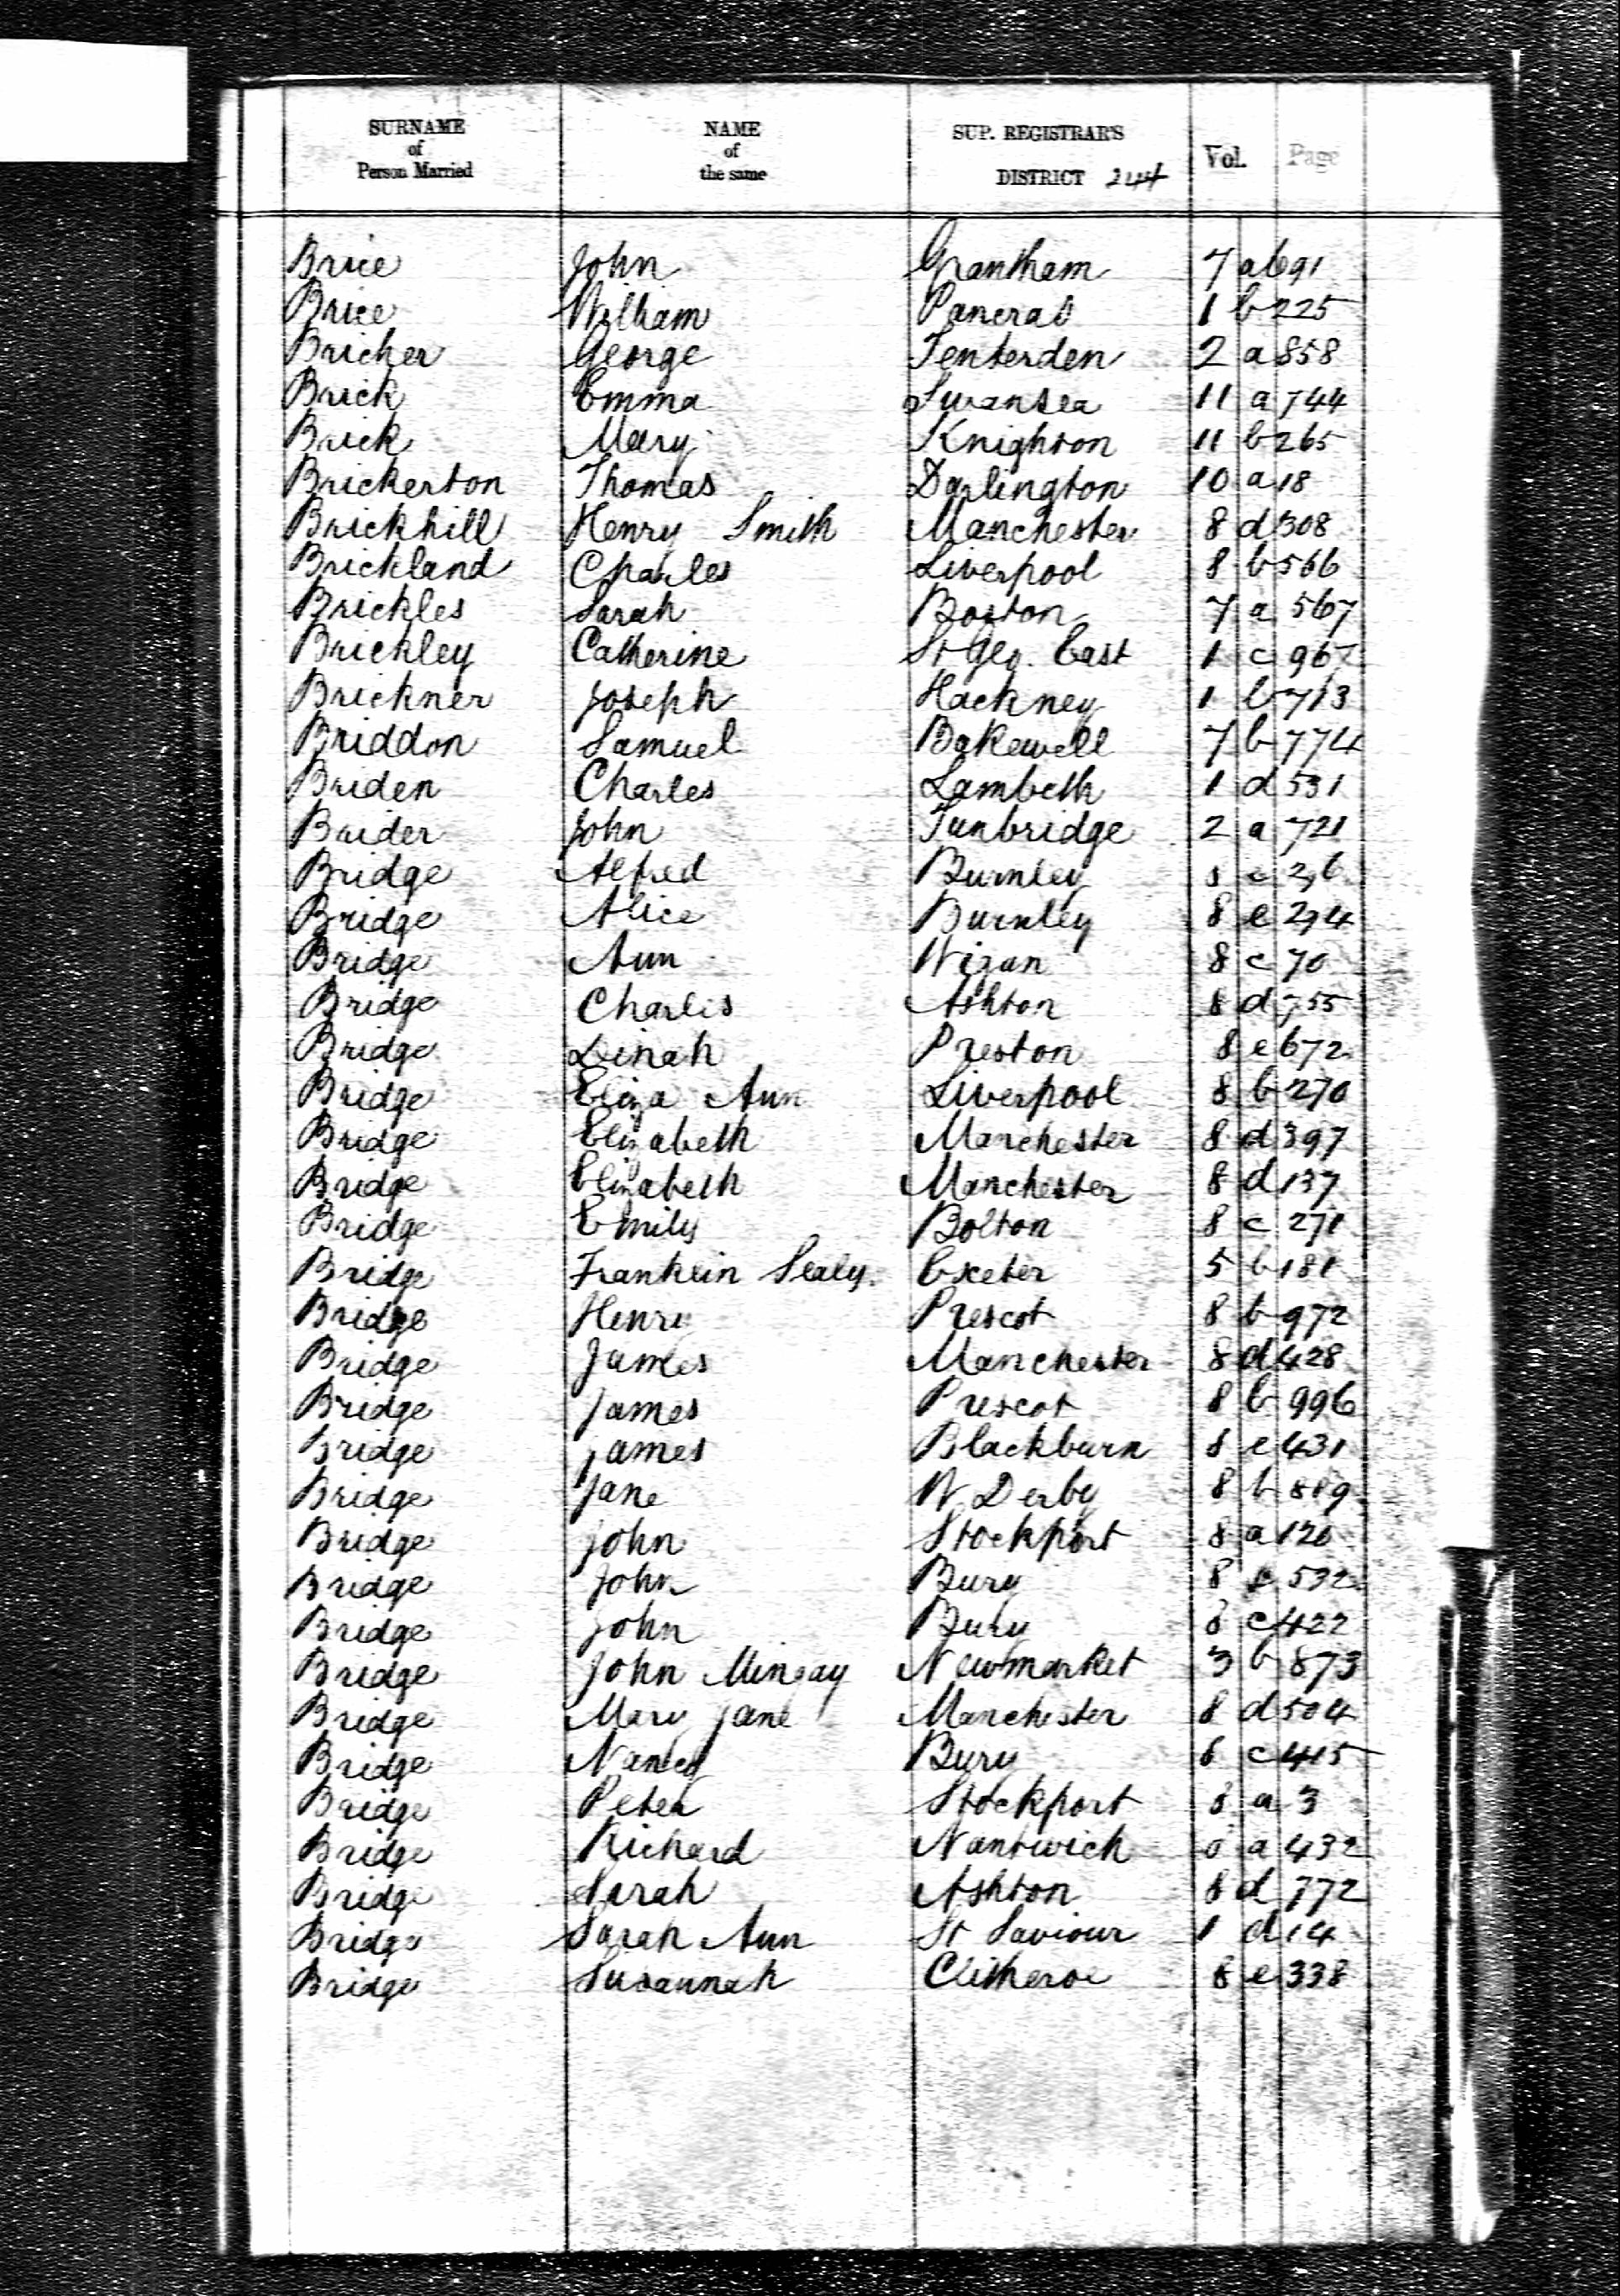 SURNAME of Person Married NAME of the same SUP. REGISTRAR'S DISTRICT 244 Vol. Page
Brice John Grantham 7 a 691
Brice William Pancras 1 b 225
Bricher George Tenterden 2 a 858
Brick Emma Swansea 11 a 744
Brick Mary Knighton 11 b 265
Brickerton Thomas Darlington 10 a 18
Brickhill Henry Smith Manchester 8 d 308
Brickland Charles Liverpool 8 b 566
Brickles Sarah Boston 7 a 567
Brickley Catherine St Geo. East 1 c 967
Brickner Joseph Hackney 1 b 713
Briddon Samuel Bakewell 7 b 774
Briden Charles Lambeth 1 d 531
Brider John Tunbridge 2 a 721
Bridge Alfred Burnley 8 e
Bridge Alice Burnley 8 e 294
Bridge Ann Wigan 8 c 70
Bridge Charles Ashton 8 d 755
Bridge Dinah Preston 8 e 672
Bridge Eliza Ann Liverpool 8 b 270
Bridge Elizabeth Manchester 8 d 397
Bridge Elizabeth Manchester 8 d 137
Bridge Emily Bolton 8 c 271
Bridge Franklin Sealy. Exeter 5 b 181
Bridge Henry Prescot 8 b 972
Bridge James Manchester 8 d 428
Bridge James Prescot 8 b 996
Bridge James Blackburn 8 e 431
Bridge Jane W. Derby 8 b 889
Bridge John Stockport 8 a 120
Bridge John Bury 8 532
Bridge John Bury 8 c 422
Bridge John Mingay Newmarket 3 b 873
Bridge Mary Jane Manchester 8 d 504
Bridge Nancy Bury 8 c 415
Bridge Peter Stockport 8 a 3
Bridge Richard Nantwich 8 a 432
Bridge Sarah Ashton 8 d 772
Bridge Sarah Ann St Saviour 1 d 14
Bridge Susannah Clitheroe 8 e 338